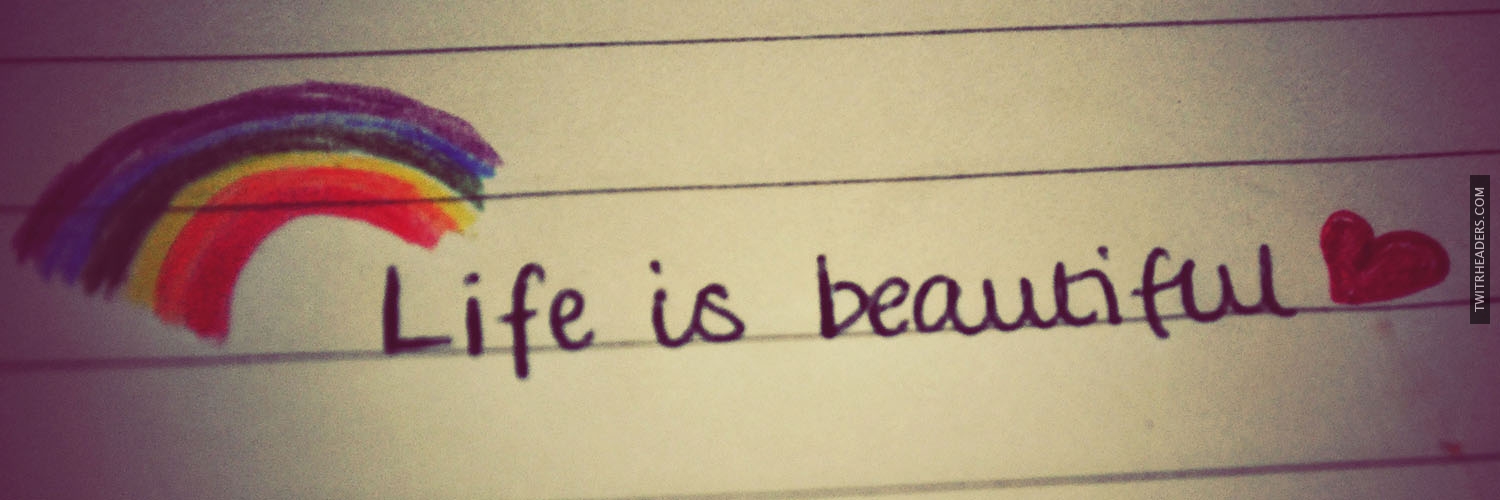 Life is beautiful
TWITRHEADERS.COM